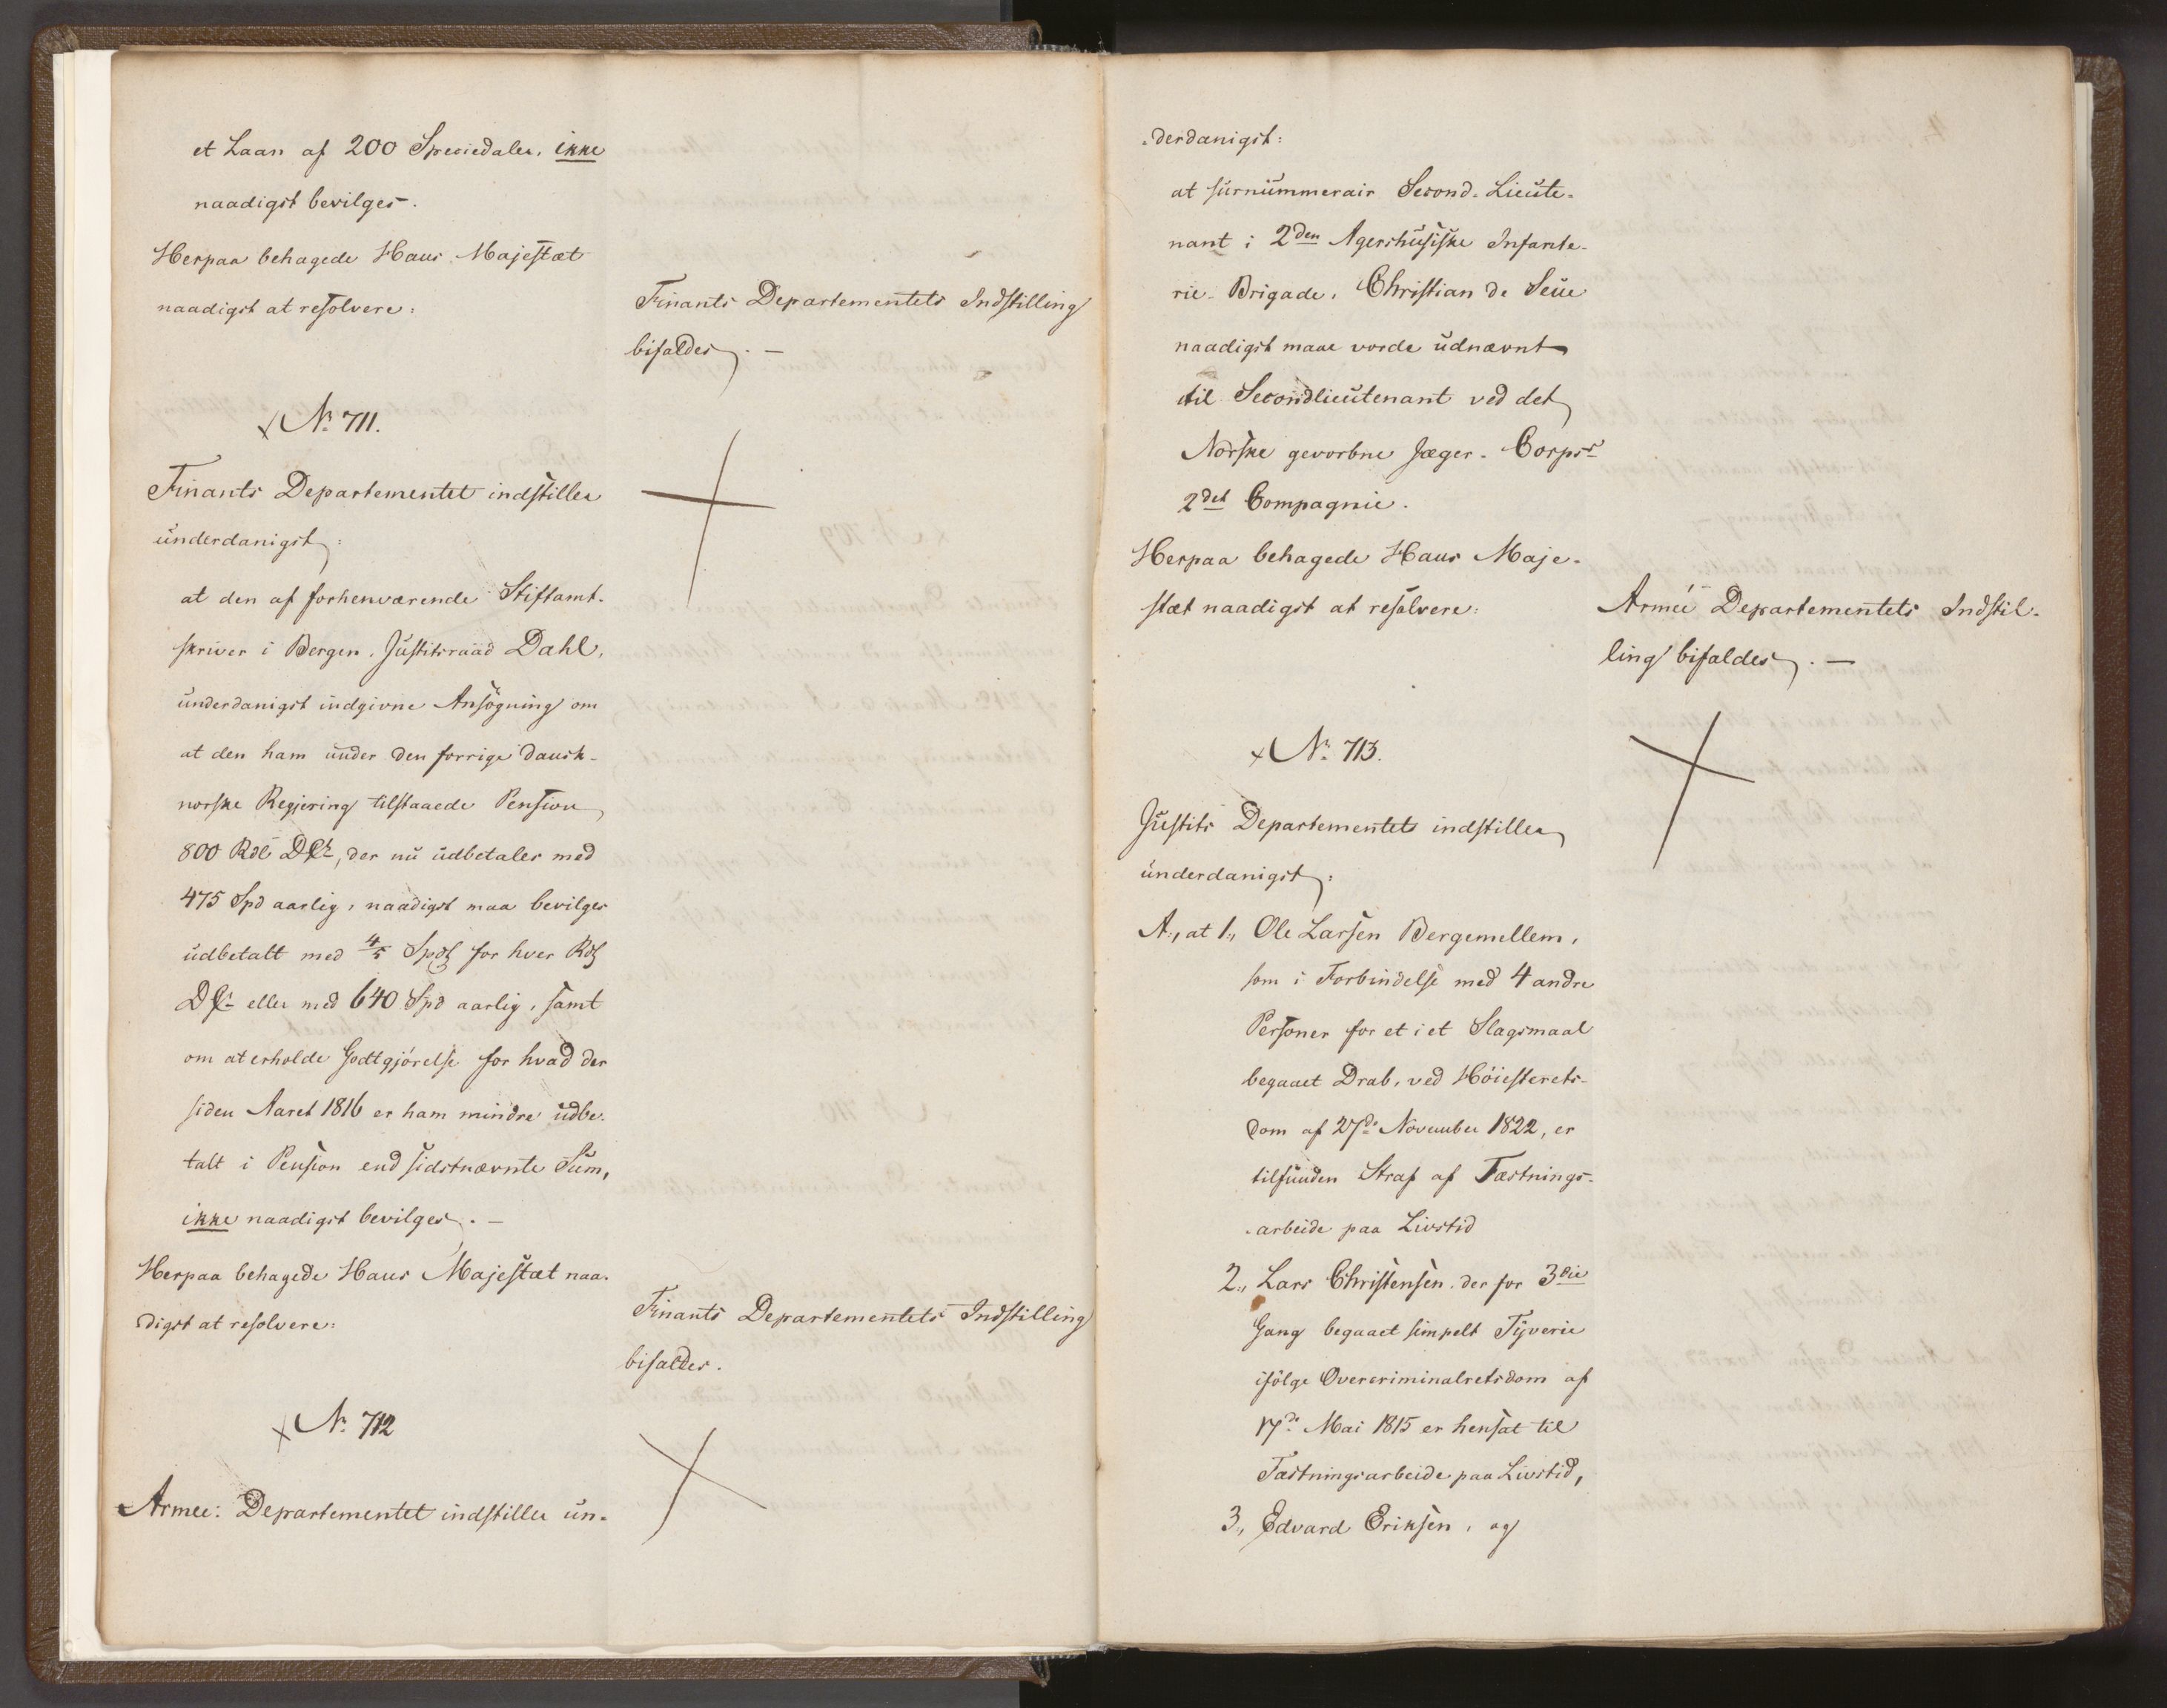 et Laan af 200 Speciedaler, ikke
naadigst bevilges.
Herpaa behagede Hans Majestæt
naadigst at resolvere:
Finants Departementets Indstilling
bifaldes. —
No 711.
Finants Departementet indstiller
underdanigst:
at den af forhenværende Stiftamt-
skriver i Bergen, Justitsraad Dahl,
underdanigst indgivne Ansøgning om
at den ham under den forrige dansk-
norske Regjering tilstaaede Pension
800 Rdl DCt, der nu udbetales med
475 Spd aarlig, naadigst maa bevilges
udbetalt med 4/5 Spd for hver Rd
DCt eller med 640 Spd aarlig, samt
om at erholde Godtgjörelse for hvad der
siden Aaret 1816 er ham mindre udbe-
talt i Pension end sidstnævnte Sum,
ikke naadigst bevilges. —
Herpaa behagede Hans Majestæt naa-
digst at resolvere:
Finants Departementets Indstilling
bifaldes.
No 712
Armee: Departementet indstiller un-
derdanigst:
at surnummerair Second-Lieute-
nant i 2den Agershusiske Infante-
rie-Brigade, Christian de Seue
naadigst maae vorde udnævnt
til Secondlieutenant ved det
Norske gevorbne Jæger-Corps's
2det Compagnie.
Herpaa behagede Hans Maje-
stæt naadigst at resolvere:
Armée Departementets Indstil-
ling bifaldes. —
No 713.
Justits Departementets indstiller
underdanigst:
A:, at 1:, Ole Larsen Bergemellem,
som i Forbindelse med 4 andre
Personer for et i et Slagsmaal
begaaet Drab, ved Höiesterets-
dom af 27de November 1822, er
tilfunden Straf af Fæstnings-
arbeide paa Livstid
2:, Lars Christensen der for 3die
Gang begaaet simpelt Tyverie
ifölge Overcriminalretsdom af
17de Mai 1815 er hensat til
Fæstningsarbeide paa Livstid,
3, Edvard Eriksen, og